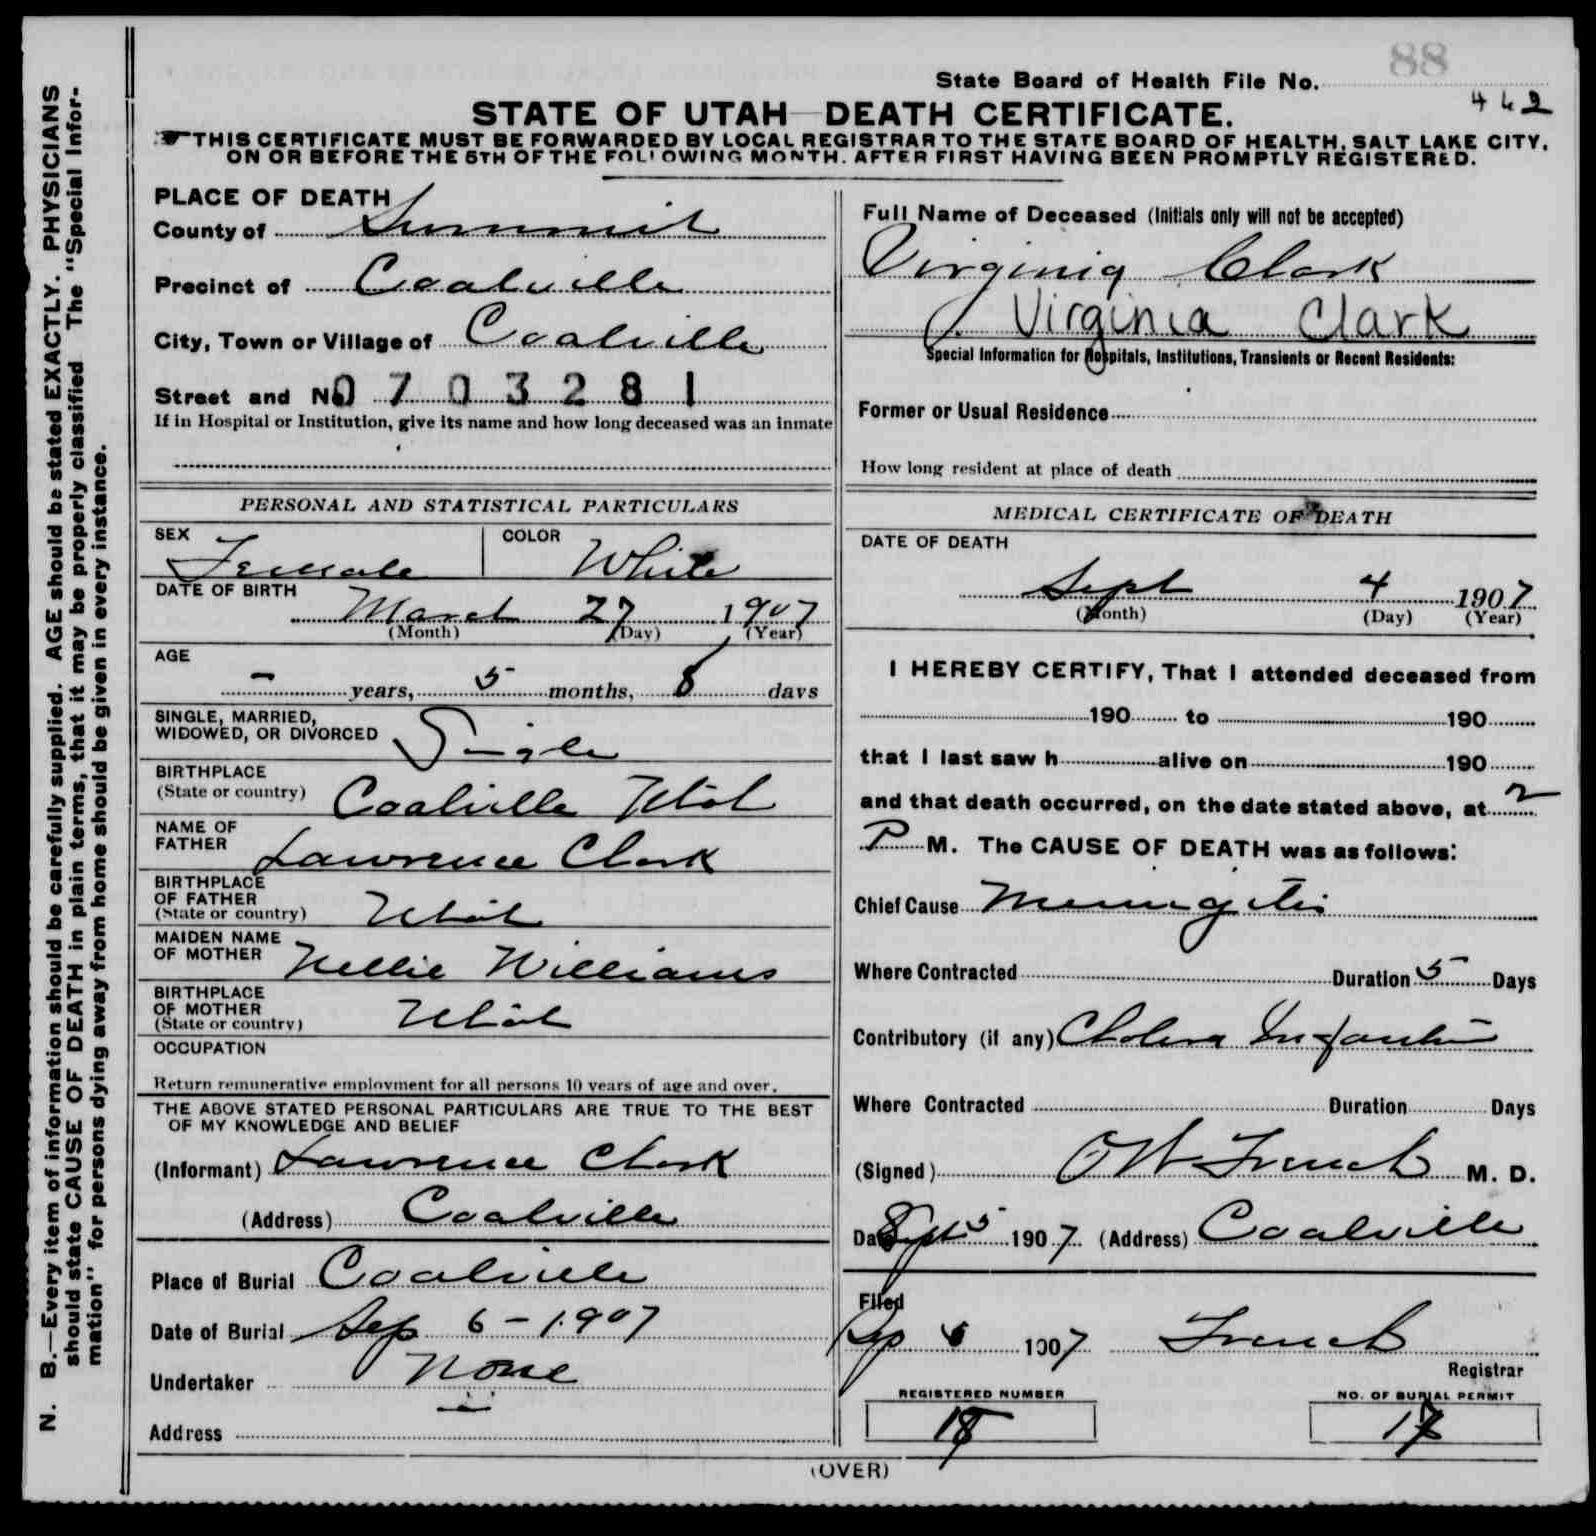 88
State Board of Health File No.
442
STATE OF UTAH—DEATH CERTIFICATE.
THIS CERTIFICATE MUST BE FORWARDED BY LOCAL REGISTRAR TO THE STATE BOARD OF HEALTH, SALT LAKE CITY,
ON OR BEFORE THE 5TH OF THE FOLLOWING MONTH. AFTER FIRST HAVING BEEN PROMPTLY REGISTERED.
N. B.—Every item of information should be carefully supplied. AGE should be stated EXACTLY. PHYSICIANS
should state CAUSE OF DEATH in plain terms, that it may be properly classified The "Special Infor-
mation" for persons dying away from home should be given in every instance.
PLACE OF DEATH
County of Summit
Precinct of Coalville
City, Town or Village of Coalville
Street and No 0703281
If in Hospital or Institution, give its name and how long deceased was an inmate
PERSONAL AND STATISTICAL PARTICULARS
SEX Female COLOR White
DATE OF BIRTH
March 27 1907
(Month) (Day) (Year)
AGE
- years, 5 months, 8 days
SINGLE, MARRIED,
WIDOWED, OR DIVORCED Single
BIRTHPLACE
(State or country) Coalville Utah
NAME OF
FATHER Lawrence Clark
BIRTHPLACE
OF FATHER
(State or country) Utah
MAIDEN NAME
OF MOTHER Nellie Williams
BIRTHPLACE
OF MOTHER
(State or country) Utah
OCCUPATION
Return remunerative employment for all persons 10 years of age and over.
THE ABOVE STATED PERSONAL PARTICULARS ARE TRUE TO THE BEST
OF MY KNOWLEDGE AND BELIEF
(Informant) Lawrence Clark
(Address) Coalville
Place of Burial Coalville
Date of Burial Sep 6 - 1907
Undertaker None
Address
Full Name of Deceased (Initials only will not be accepted)
Virginia Clark
Virginia Clark
Special Information for Hospitals, Institutions, Transients or Recent Residents:
Former or Usual Residence
How long resident at place of death
MEDICAL CERTIFICATE OF DEATH
DATE OF DEATH
Sept 4 1907
(Month) (Day) (Year)
I HEREBY CERTIFY, That I attended deceased from
190 to 190
that I last saw h alive on 190
and that death occurred, on the date stated above, at 2
P M. The CAUSE OF DEATH was as follows:
Chief Cause Meningitis
Where Contracted Duration 5 Days
Contributory (if any) Cholera Infantum
Where Contracted Duration Days
(Signed) O W French M. D.
Date Sept 5 1907 (Address) Coalville
Filed
Sep 6 1907 French
Registrar
REGISTERED NUMBER
NO. OF BURIAL PERMIT
(OVER)